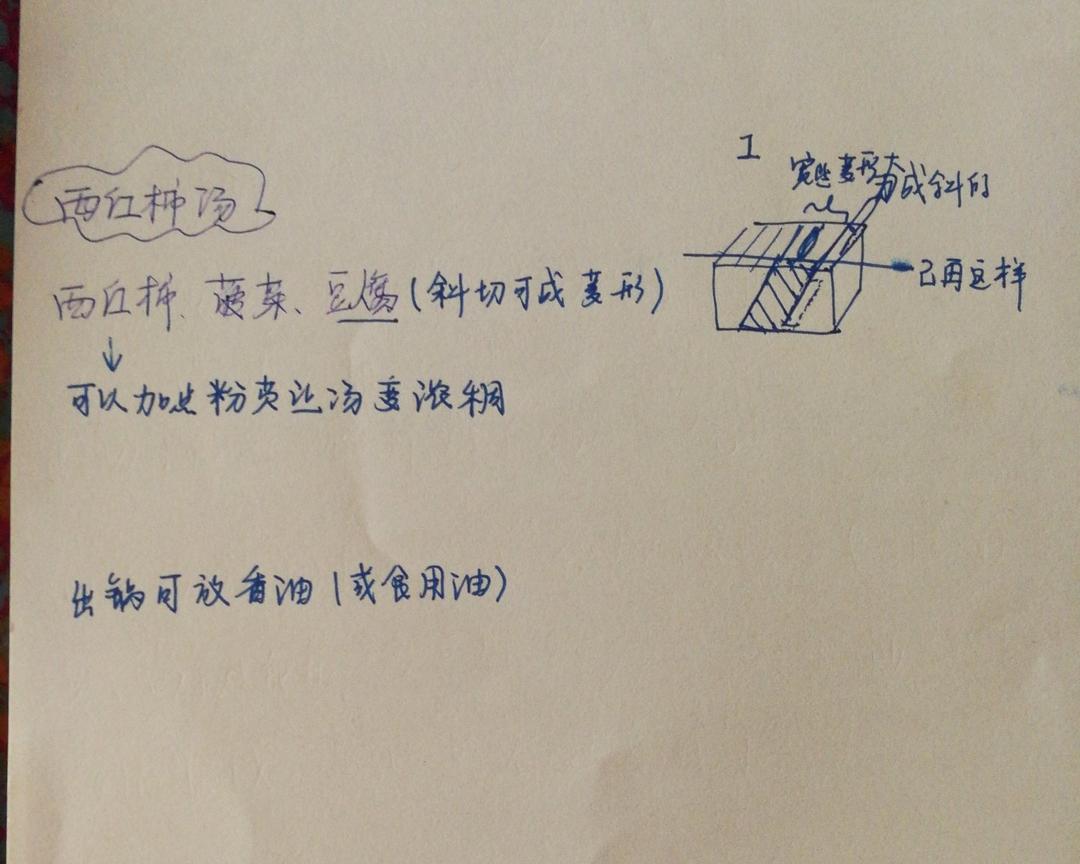 西红柿汤
西红柿、菠菜、豆腐(斜切可成菱形)
↓
可以加点粉芡让汤变浓稠
出锅可放香油(或食用油)
1
宽些菱形大
成斜的
再这样